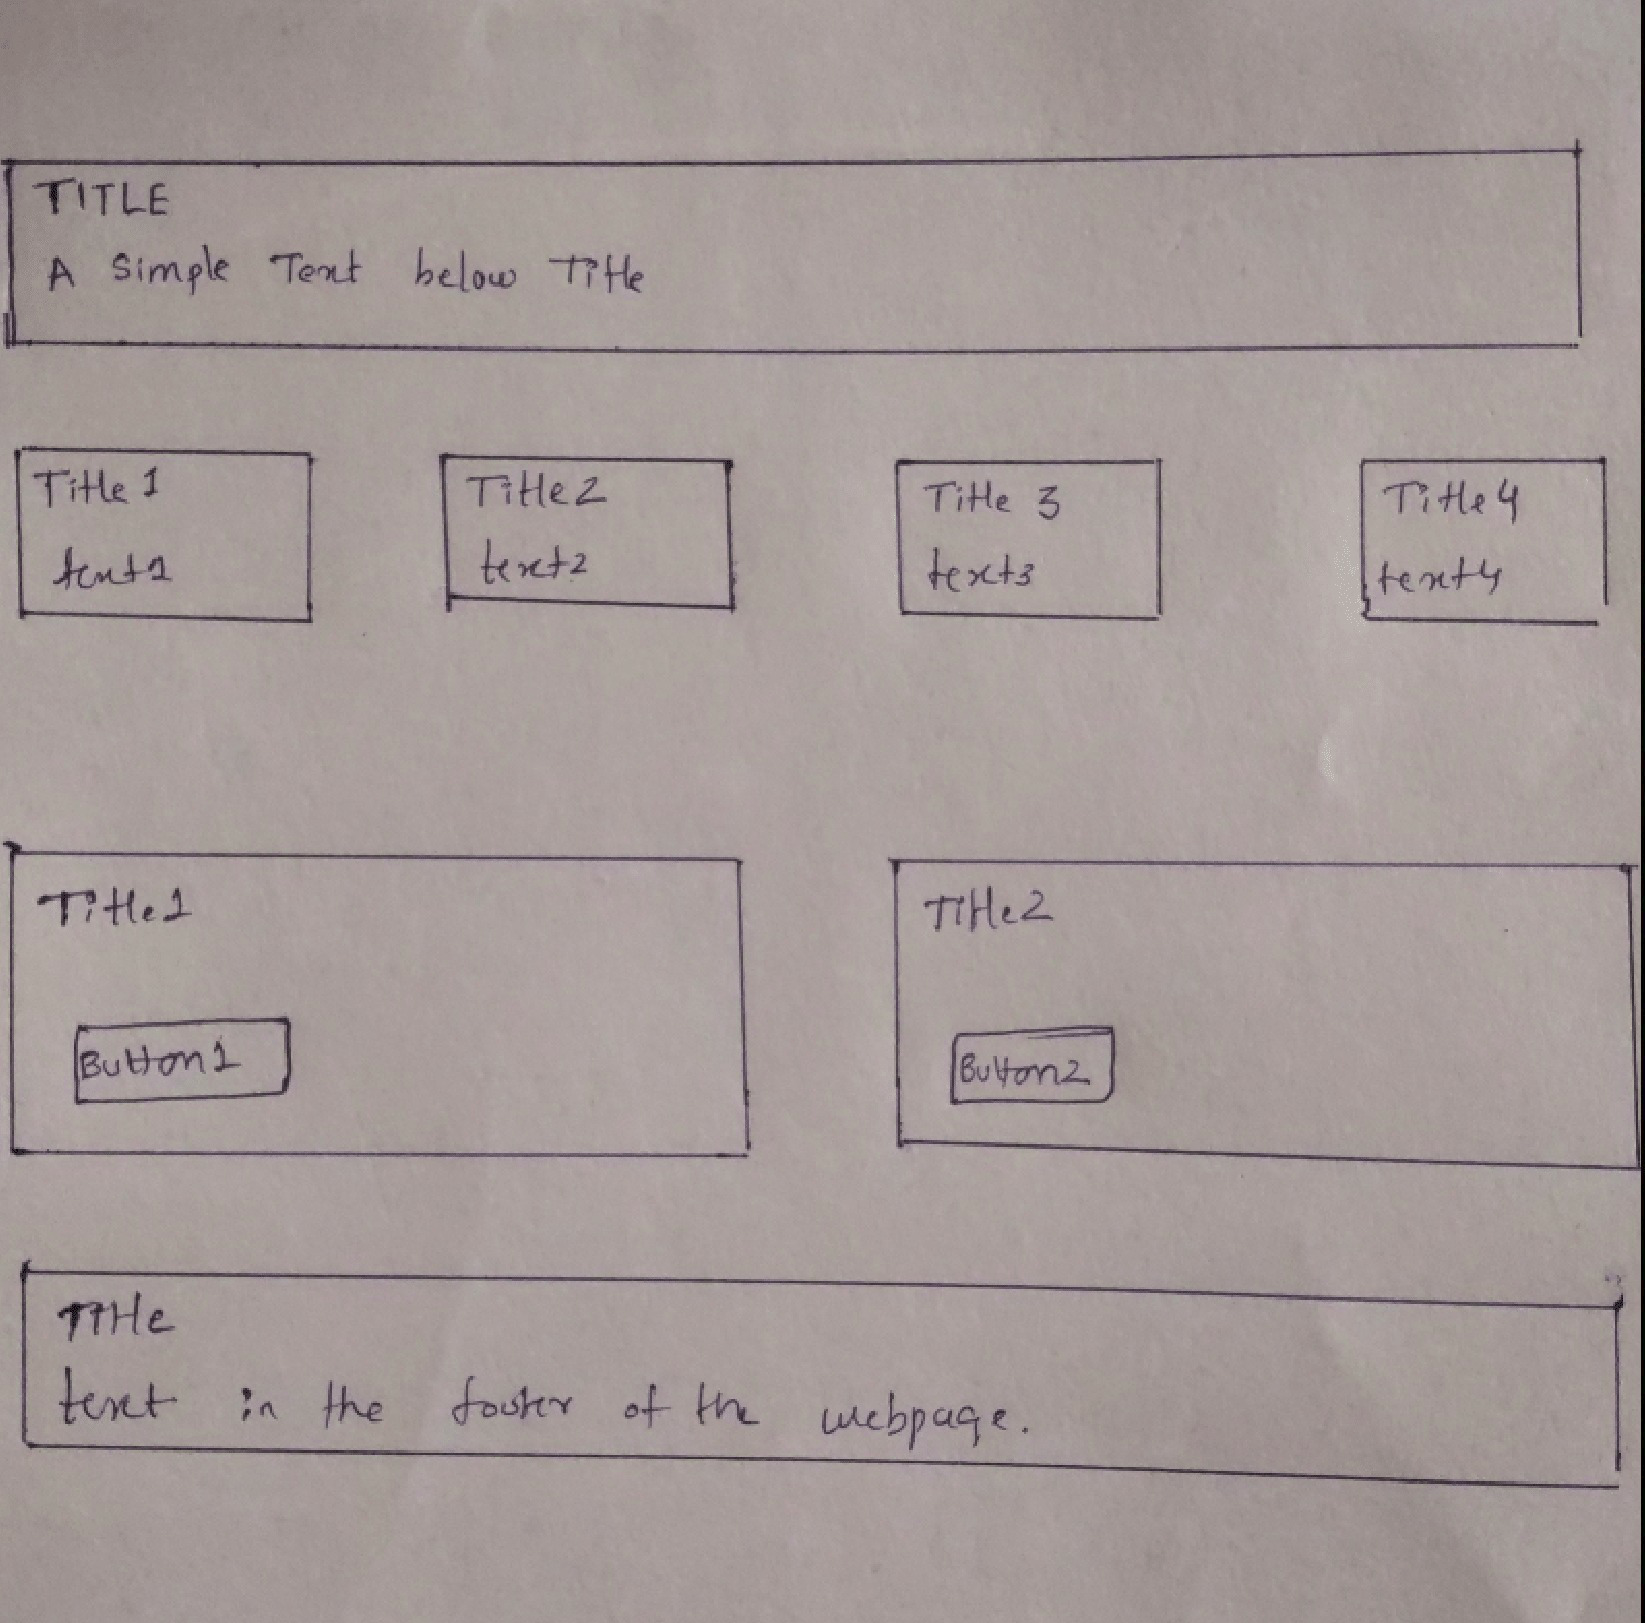 TITLE
A Simple Text below Title
Title 1
text1
Title 2
text2
Title 3
text3
Title 4
text4
Title1
Button1
Title2
Button2
Title
text in the footer of the webpage.